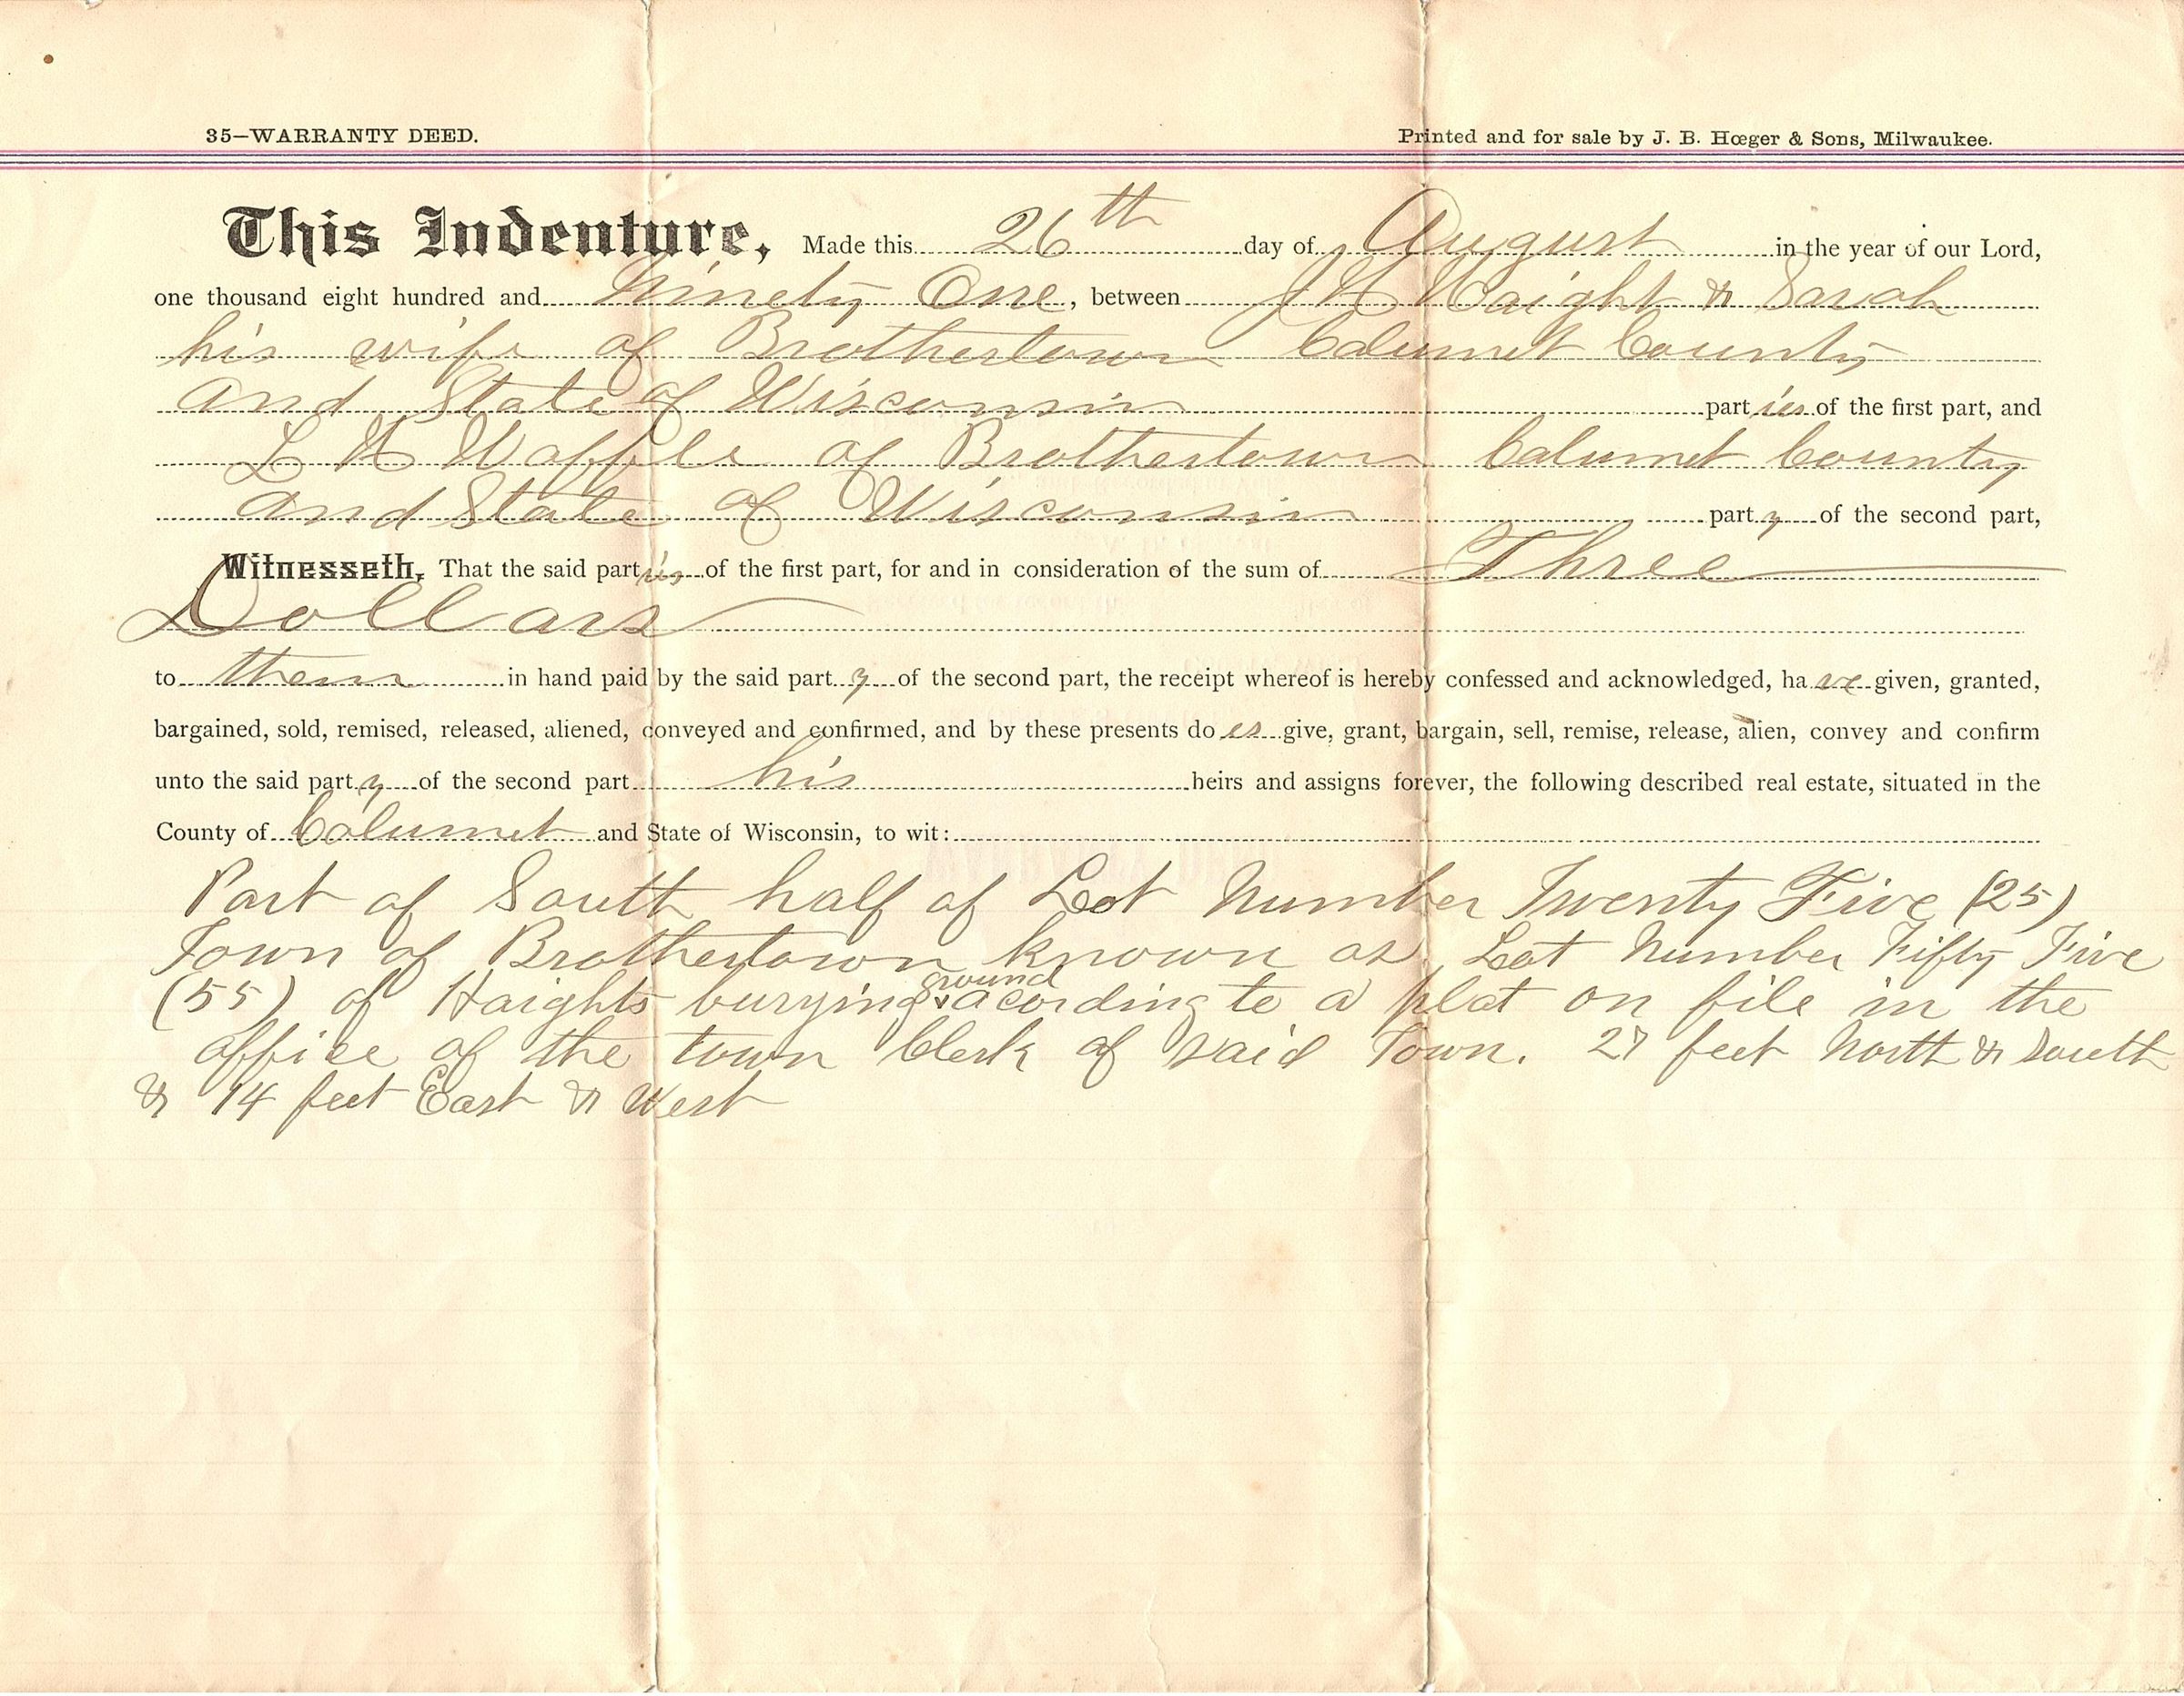 35—WARRANTY DEED. Printed and for sale by J. B. Hœger & Sons, Milwaukee.
This Indenture, Made this 26th day of August in the year of our Lord,
one thousand eight hundred and Ninety One, between J H Haight & Sarah
his wife of Brothertown Calumet County
and State of Wisconsin part ies of the first part, and
L H Waffle of Brothertown Calumet County
and State of Wisconsin part y of the second part,
Witnesseth, That the said part ies of the first part, for and in consideration of the sum of Three
Dollars
to them in hand paid by the said part y of the second part, the receipt whereof is hereby confessed and acknowledged, ha ve given, granted,
bargained, sold, remised, released, aliened, conveyed and confirmed, and by these presents do es give, grant, bargain, sell, remise, release, alien, convey and confirm
unto the said part y of the second part his heirs and assigns forever, the following described real estate, situated in the
County of Calumet and State of Wisconsin, to wit:
Part of South half of Lot Number Twenty Five (25)
Town of Brothertown known as Lot Number Fifty Five
(55) of Haights burying ground acording to a plat on file in the
office of the town Clerk of said Town. 27 feet North & South
& 14 feet East & West